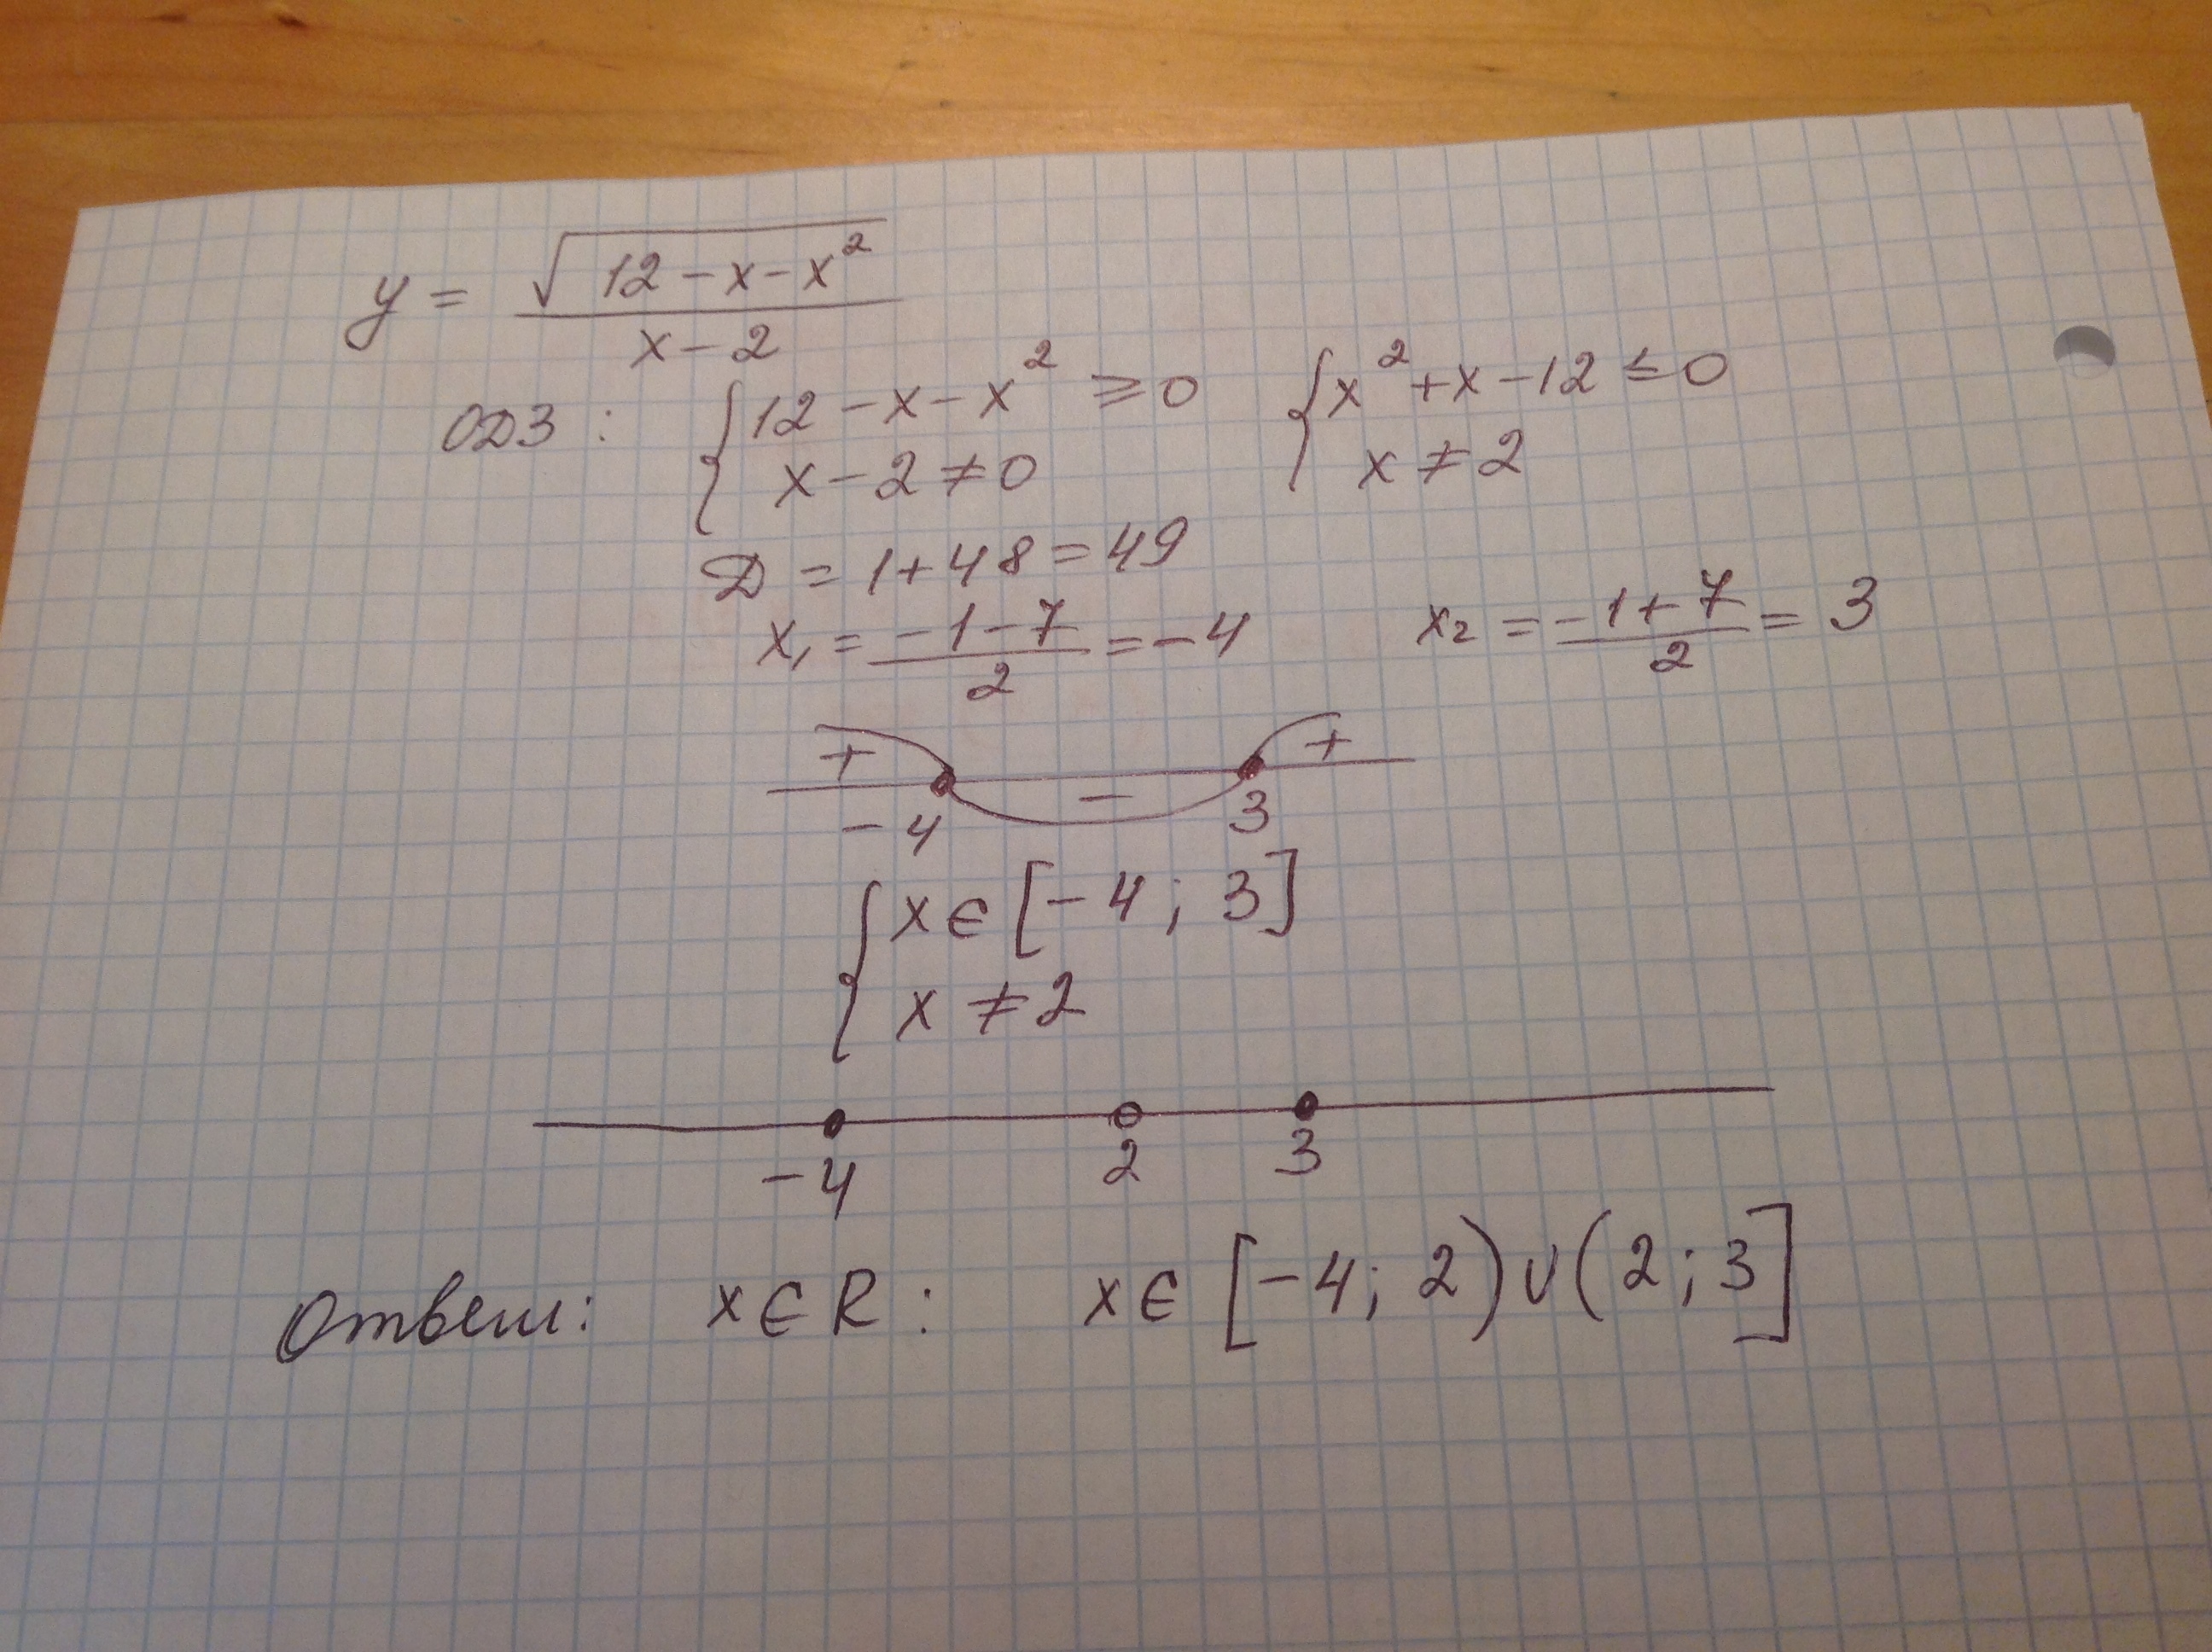 y = √(12 - x - x²) / (x - 2)
ОДЗ : { 12 - x - x² ≥ 0 { x² + x - 12 ≤ 0
x - 2 ≠ 0 x ≠ 2
D = 1 + 48 = 49
x₁ = (-1 - 7) / 2 = -4 x₂ = (-1 + 7) / 2 = 3
+ - +
-4 3
{ x ∈ [-4 ; 3]
x ≠ 2
-4 2 3
Ответ: x ∈ R : x ∈ [-4; 2) ∪ (2; 3]